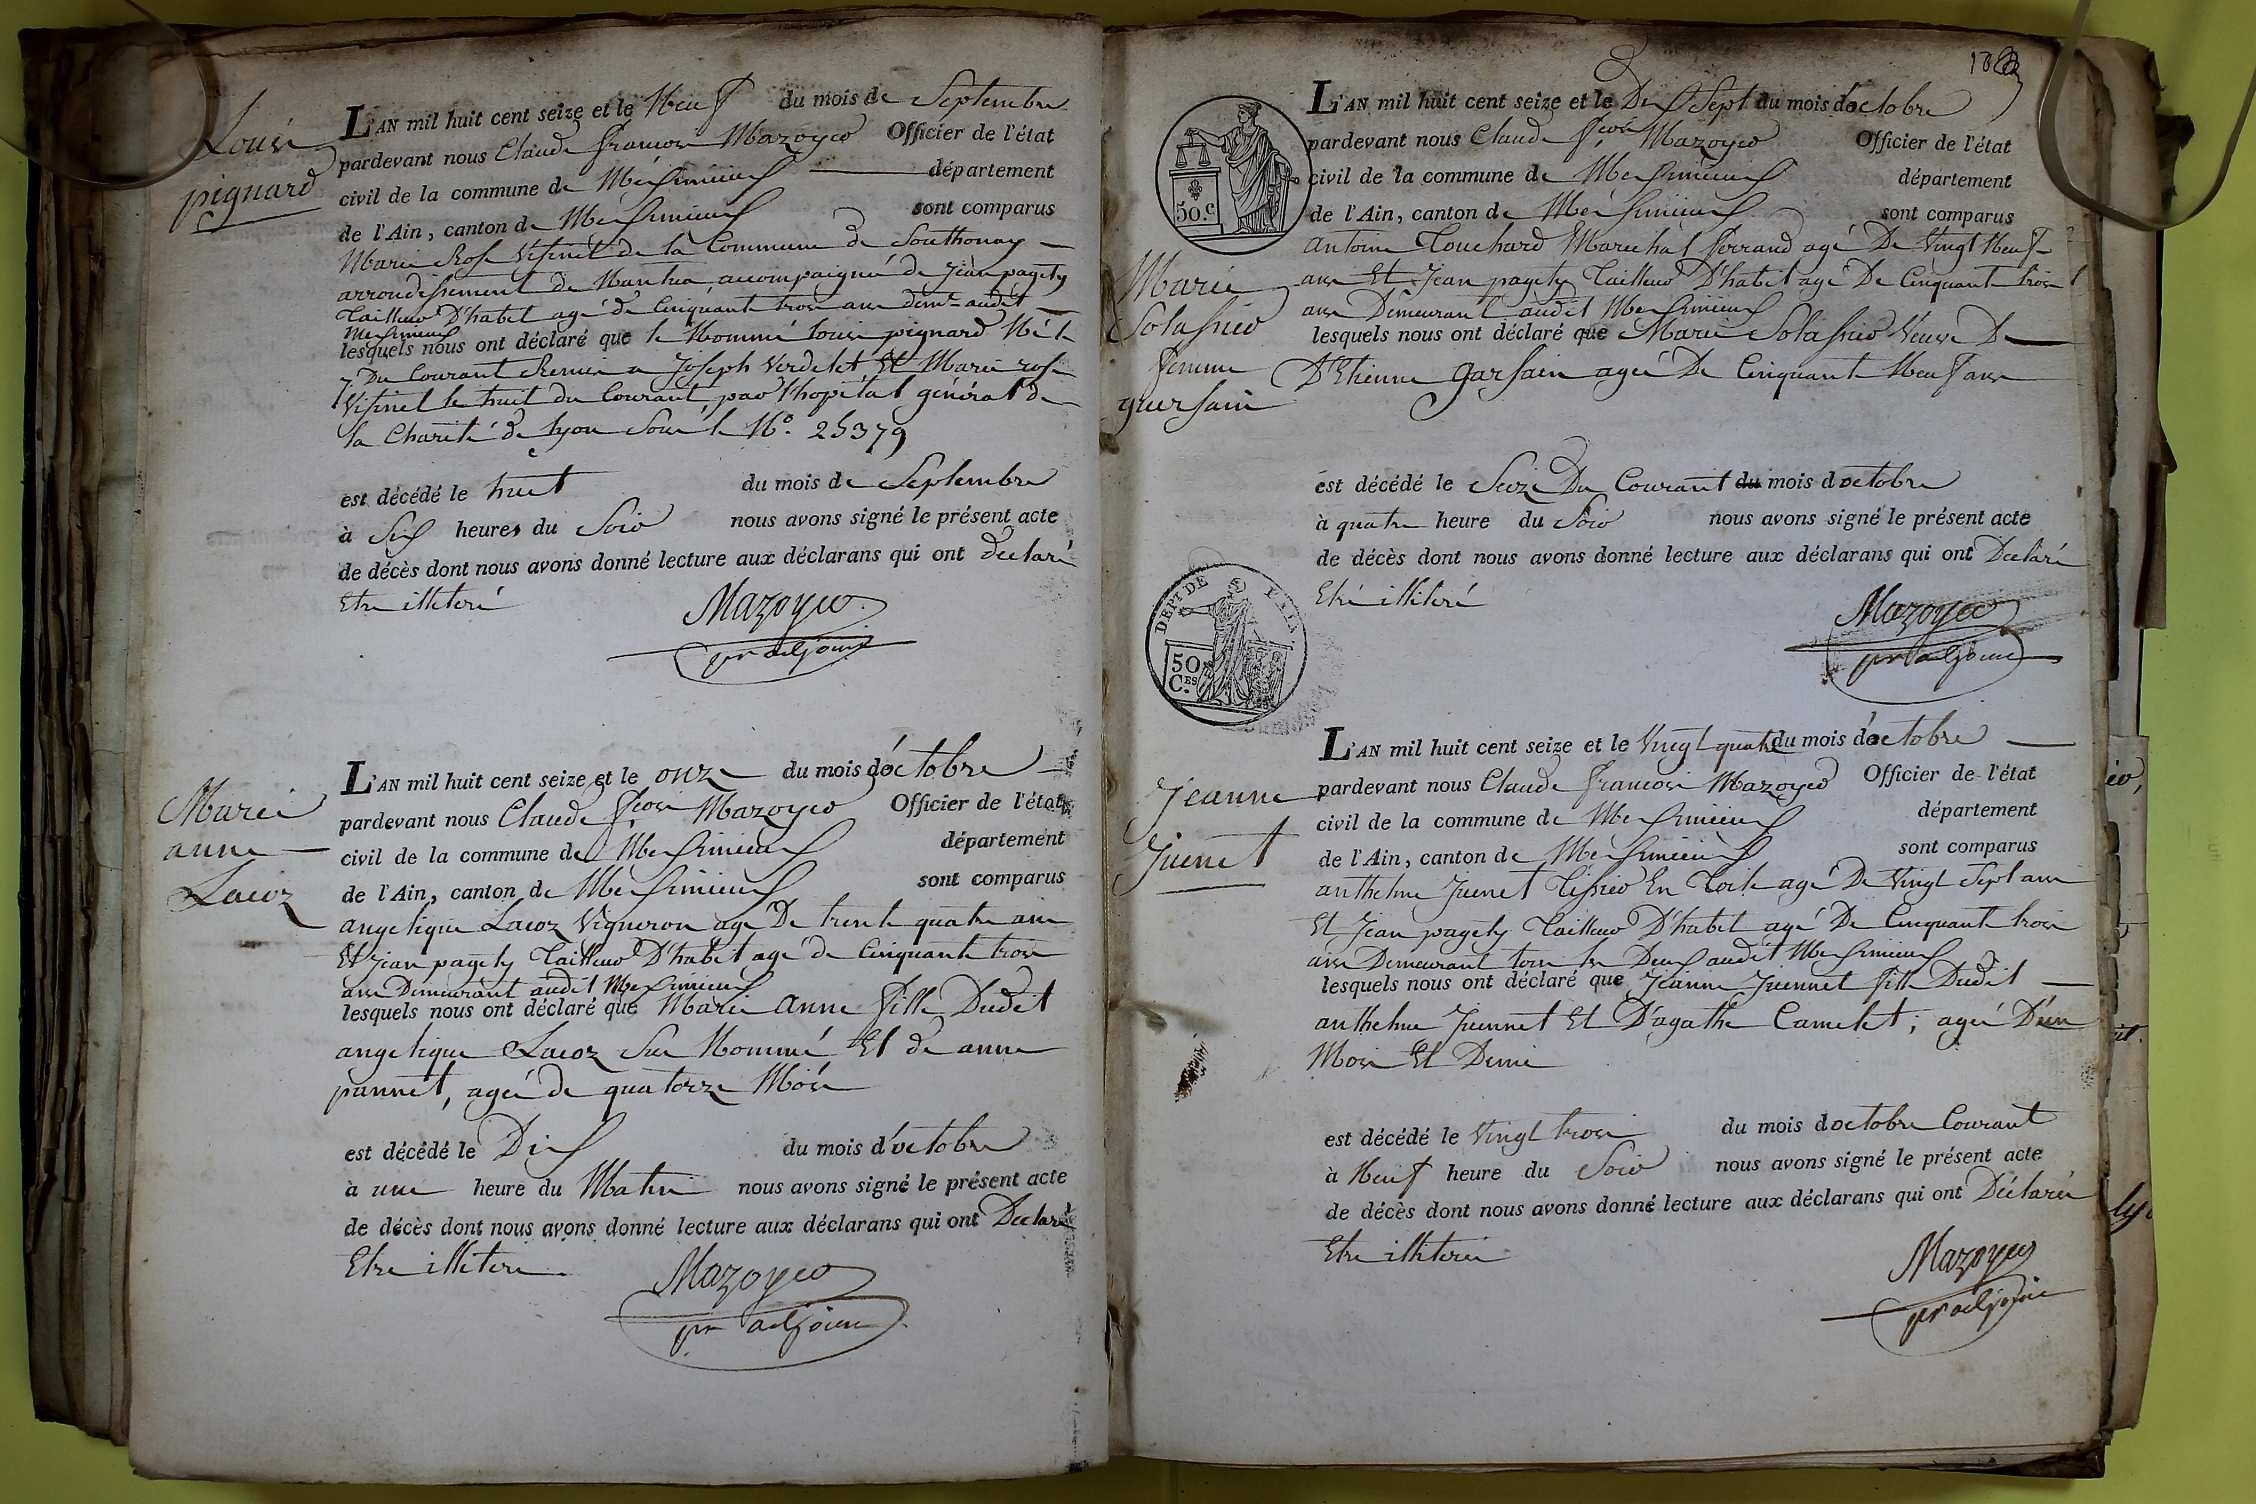 Louis
pignard
L'AN mil huit cent seize et le Neuf du mois de Septembre
pardevant nous Claude francois Mazoyer Officier de l'état
civil de la commune de Meximieux département
de l'Ain, canton de Meximieux sont comparus
Marie Rose Visinet de la Commune de Southonay
arrondissement de Nantua, accompaigné de Jean pagety
Tailleur D'habit agé de Cinquante trois ans demt audit
Meximieux
lesquels nous ont déclaré que le Nommé Louis pignard Né le
7 Du Courant Remis a Joseph Verdelet Et Marie rose
Visinet le huit du Courant par l'hopital général de
la Charité de lyon Sous le No. 25379
est décédé le huit du mois de Septembre
à Six heures du Soir nous avons signé le présent acte
de décès dont nous avons donné lecture aux déclarans qui ont declaré
Etre illiteré
Mazoyer
pr adjoint
Marie
anne
Lacoz
L'AN mil huit cent seize et le onze du mois d'octobre
pardevant nous Claude fcois Mazoyer Officier de l'état
civil de la commune de Meximieux département
de l'Ain, canton de Meximieux sont comparus
angelique Lacoz Vigneron agé De trente quatre ans
Et Jean pagety Tailleur D'habit agé de Cinquante trois
ans Demeurant audit Meximieux
lesquels nous ont déclaré que Marie anne fille Dudit
angelique Lacoz Sus Nommé Et de anne
pannet, agée de quatorze Mois
est décédé le Dix du mois d'octobre
à une heure du Matin nous avons signé le présent acte
de décès dont nous avons donné lecture aux déclarans qui ont Declaré
Etre illiteré
Mazoyer
pr adjoint
50.c
L'AN mil huit cent seize et le Dix Sept du mois d'octobre
pardevant nous Claude fcois Mazoyer Officier de l'état
civil de la commune de Meximieux département
de l'Ain, canton de Meximieux sont comparus
antoine Touchard Marechal ferrand agé De Vingt Neuf
ans Et Jean pagety Tailleur D'habit agé De Cinquante trois
ans Demeurant audit Meximieux
Marie
Solassier
femme
guersain
lesquels nous ont déclaré que Marie Solassier Veuve De
D'Etienne garsain agée De Cinquante Neuf ans
est décédé le Seize Du Courant du mois d octobre
à quatre heure du Soir nous avons signé le présent acte
de décès dont nous avons donné lecture aux déclarans qui ont Declaré
Etre illiteré
Mazoyer
pr adjoint
DEPT DE L'AIN.
50
CES
L'AN mil huit cent seize et le Vingt quatre du mois d'octobre
Jeanne
Juenet
pardevant nous Claude francois Mazoyer Officier de l'état
civil de la commune de Meximieux département
de l'Ain, canton de Meximieux sont comparus
anthelme Juenet Tissier En Toile agé De Vingt Sept ans
Et Jean pagety Tailleur D'habit agé De Cinquante trois
ans Demeurant tous les Deux audit Meximieux
lesquels nous ont déclaré que Jeanne Juennet fille Dudit
anthelme Juennet Et D'agathe Camelet, agée D'un
Mois Et Demi
est décédé le Vingt trois du mois d octobre Courant
à Neuf heure du Soir nous avons signé le présent acte
de décès dont nous avons donné lecture aux déclarans qui ont Déclaré
Etre illiteré
Mazoyer
pr adjoint